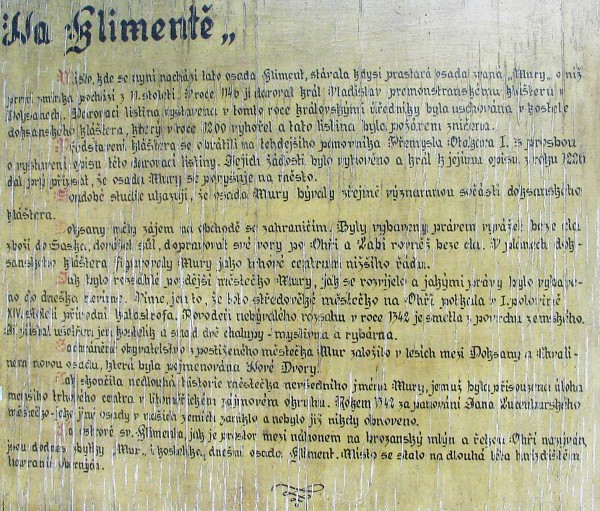 Na Klimentě„
Místo, kde se nyní nachází tato osada Kliment, stávala kdysi prastará osada zvaná „Mury„ o níž
první zmínka pochází z 11. století. V roce 1146 jí daroval král Vladislav premonstrátskému klášteru v
Doksanech. Darovací listina vystavená v tomto roce královskými úředníky byla uschována v kostele
doksanského kláštera, který v roce 1200 vyhořel a tato listina byla požárem zničena.
Představení kláštera se obrátili na tehdejšího panovníka Přemysla Otakara I. s prosbou
o vystavení opisu této darovací listiny. Jejich žádosti bylo vyhověno a král k jejímu opisu z roku 1226
dal prý připsat, že osada Mury se povyšuje na město.
Soudobé studie ukazují, že osada Mury bývaly zřejmě významnou součástí doksanského
kláštera.
Doksany měly zájem na obchodě se zahraničím. Byly vybaveny právem vyvážet beze cla
zboží do Saska, dovážet sůl, dopravovat své vory po Ohři a Labi rovněž beze cla. V plánech dok-
sanského kláštera figurovaly Mury jako trhové centrum nižšího řádu.
Jak bylo rozsáhlé pozdější městečko Mury, jak se rozvíjelo a jakými právy bylo vybave-
no do dneška nevíme. Víme jen to, že toto středověké městečko na Ohři potkala v I. polovině
XIV. století přírodní katastrofa. Povodeň nebývalého rozsahu v roce 1342 je smetla z povrchu zemského.
usetřen jen kostelík a snad dvě chalupy - myslivna a rybárna.
Zachráněné obyvatelstvo z postiženého městečka Mur založilo v lesích mezi Doksany a Chvalí-
nem novou osadu, která byla pojmenována Nové Dvory.
Tak skončila nedlouhá historie městečka nevšedního jména Mury, jemuž byla přisouzena úloha
menšího trhového centra v litoměřickém zájmovém okruhu. Rokem 1342 za panování Jana Lucemburského
městečko-jako jiné osady v našich zemích zaniklo a nebylo již nikdy obnoveno.
Na ostrově sv. Klimenta, jak je prostor mezi náhonem na brozanský mlýn a řekou Ohří nazýván,
jsou dodnes zbytky „Mur„ i kostelíka, dnešní osada Kliment. Místo se stalo na dlouhá léta hnízdištěm
havranů